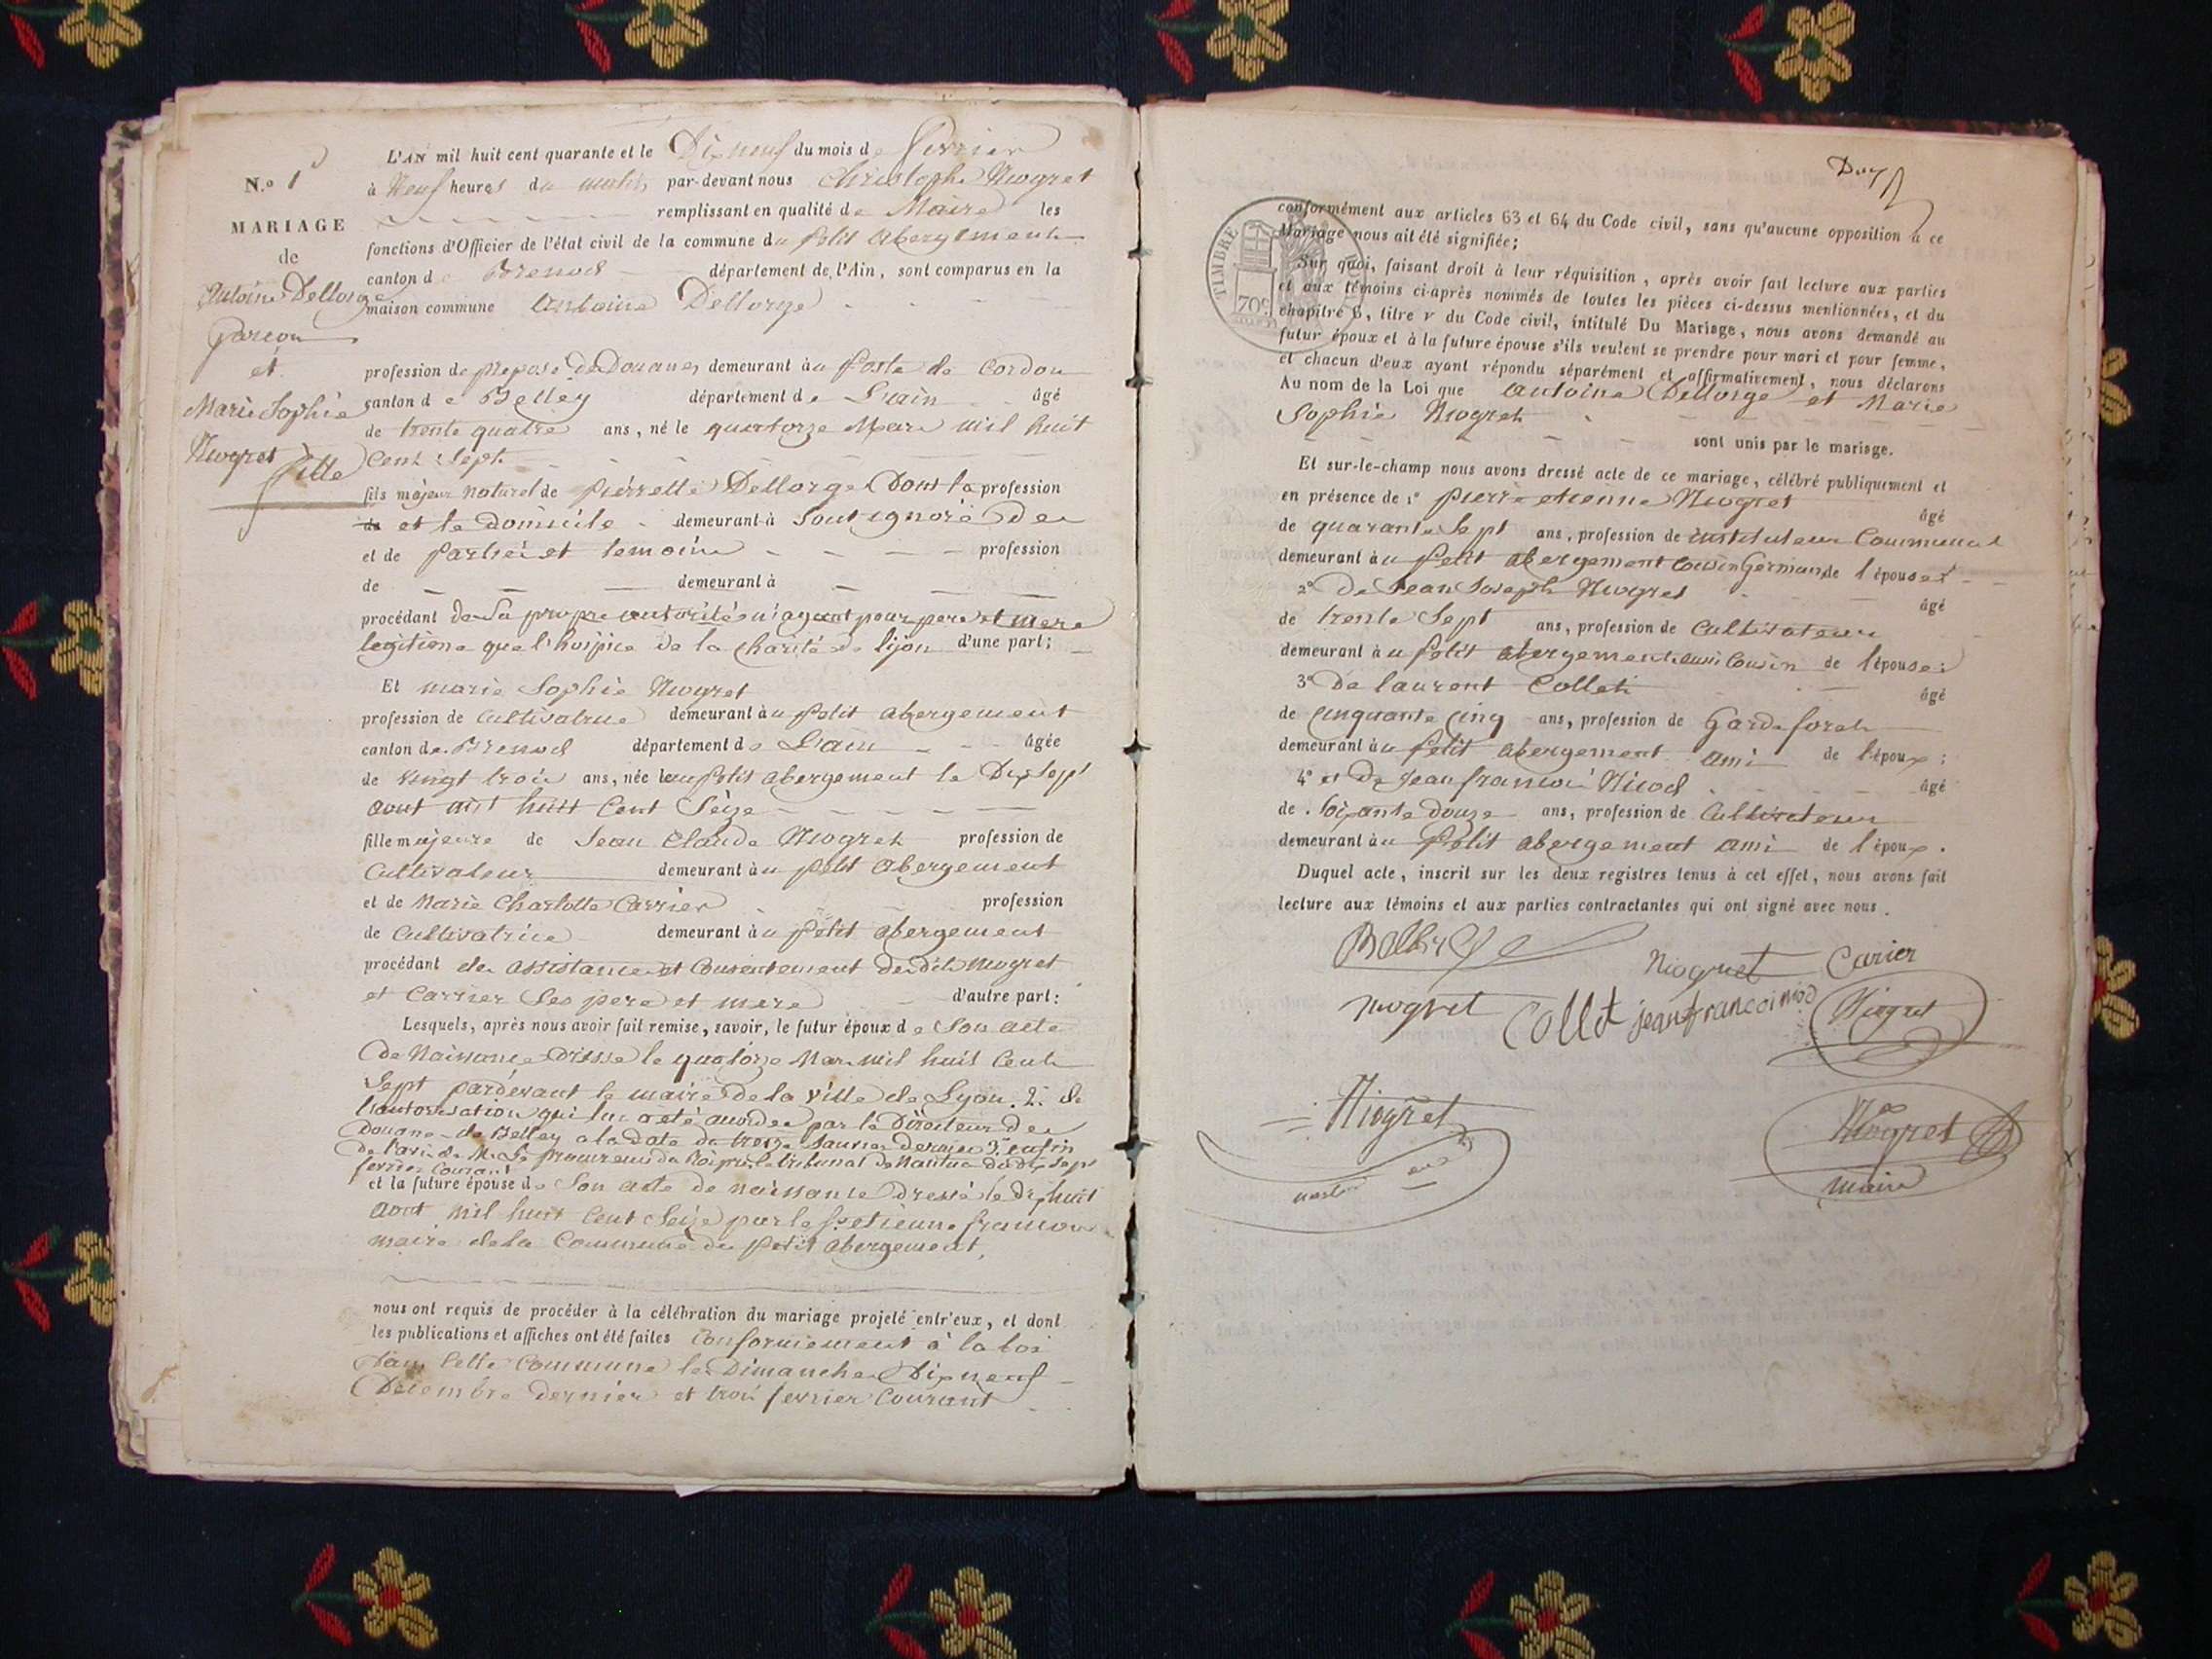 N.o 1
MARIAGE
de
Antoine Dellorge
Garcon
et
Marie Sophie
Niogret fille
L'AN mil huit cent quarante et le Dix neuf du mois de fevrier
à Neuf heures du matin par-devant nous Christophe Niogret
remplissant en qualité de Maire les
fonctions d'Officier de l'état civil de la commune du petit abergement
canton de Brenod département de l'Ain, sont comparus en la
maison commune Antoine Dellorge
profession de préposé de Douanes demeurant au Poste de Cordon
canton de Belley département de L'ain âgé
de trente quatre ans, né le quatorze Mars mil huit
Cent Sept
fils majeur Naturel de pierrette Dellorge Dont la profession
et le Domicile demeurant à Sont ignoré des
et de Parties et temoins profession
de demeurant à
procédant de Sa propre autorité n'ayant pour pere et mere
legitime que l'hospice de la Charité de lyon d'une part;
Et marie Sophie Niogret
profession de Cultivatrice demeurant au petit abergement
canton de Brenod département de L'ain âgée
de vingt trois ans, née au petit abergement le Dix Sept
aout mil huit Cent Seize
fille majeure de Jean Claude Niogret profession de
Cultivateur demeurant au petit abergement
et de Marie Charlotte Carrier profession
de Cultivatrice demeurant au petit abergement
procédant de assistance et Consentement desdits Niogret
et Carrier Ses pere et mere d'autre part:
Lesquels, après nous avoir fait remise, savoir, le futur époux de Son acte
de Naissance Dressé le quatorze Mars mil huit Cent
Sept pardevant le maire de la ville de Lyon. 2.o de
l'autorisation qui lui a été accordée par le Directeur des
Douanes de Belley a la date du treize Janvier dernier 3.o enfin
de l'avis de M. Le procureur du Roi près le tribunal de Nantua du dix sept
fevrier Courant
et la future épouse de Son acte de naissance Dressé le dix huit
aout mil huit Cent Seize par le S.r etienne francois
maire de la Commune du petit abergement,
nous ont requis de procéder à la célébration du mariage projeté entr'eux, et dont
les publications et affiches ont été faites Conformement à la loi
dans Cette Commune les Dimanches Dix neuf
Decembre dernier et trois fevrier Courant
conformément aux articles 63 et 64 du Code civil, sans qu'aucune opposition à ce
Mariage nous ait été signifiée;
TIMBRE ROYAL
70c.
Sur quoi, faisant droit à leur réquisition, après avoir fait lecture aux parties
et aux témoins ci-après nommés de toutes les pièces ci-dessus mentionnées, et du
chapitre 6, titre v du Code civil, intitulé Du Mariage, nous avons demandé au
futur époux et à la future épouse s'ils veulent se prendre pour mari et pour femme,
et chacun d'eux ayant répondu séparément et affirmativement, nous déclarons
Au nom de la Loi que Antoine Dellorge et Marie
Sophie Niogret
sont unis par le mariage.
Et sur-le-champ nous avons dressé acte de ce mariage, célébré publiquement et
en présence de 1.o pierre etienne Niogret âgé
de quarante Sept ans, profession de instituteur Communal
demeurant au petit abergement Cousin Germain de l'épouse
2.o De Jean Joseph Niogret âgé
de trente Sept ans, profession de Cultivateur
demeurant au petit abergement aussi Cousin de l'épouse:
3.o De laurent Collet âgé
de Cinquante Cinq ans, profession de Garde foret
demeurant au petit abergement ami de l'époux:
4.o et De Jean francois Nicod âgé
de Soixante Douze ans, profession de Cultivateur
demeurant au petit abergement ami de l'époux.
Duquel acte, inscrit sur les deux registres tenus à cet effet, nous avons fait
lecture aux témoins et aux parties contractantes qui ont signé avec nous.
Niogret Carier
niogret Collet jean francoi nicod Niogret
Niogret
Niogret
maire